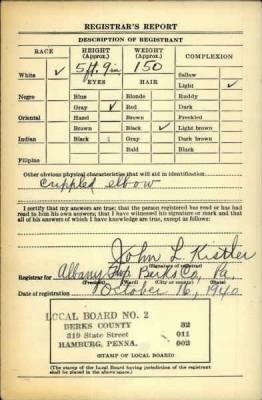 REGISTRAR'S REPORT
DESCRIPTION OF REGISTRANT
RACE HEIGHT (Approx.) WEIGHT (Approx.) COMPLEXION
White ✓ 5 ft. 9 in. 150 Sallow
EYES HAIR Light ✓
Negro Blue Blonde Ruddy
Gray ✓ Red Dark
Oriental Hazel Brown Freckled
Brown Black ✓ Light brown
Indian Black Gray Dark brown
Bald Black
Filipino
Other obvious physical characteristics that will aid in identification
crippled elbow
I certify that my answers are true; that the person registered has read or has had
read to him his own answers; that I have witnessed his signature or mark and that
all of his answers of which I have knowledge are true, except as follows:
John L Kistler
(Signature of registrar)
Registrar for Albany Twp Berks Co, Pa
(Precinct) (Ward) (City or county) (State)
Date of registration October 16, 1940
LOCAL BOARD NO. 2
BERKS COUNTY 32
319 State Street 011
HAMBURG, PENNA. 002
(STAMP OF LOCAL BOARD)
(The stamp of the Local Board having jurisdiction of the registrant
shall be placed in the above space.)